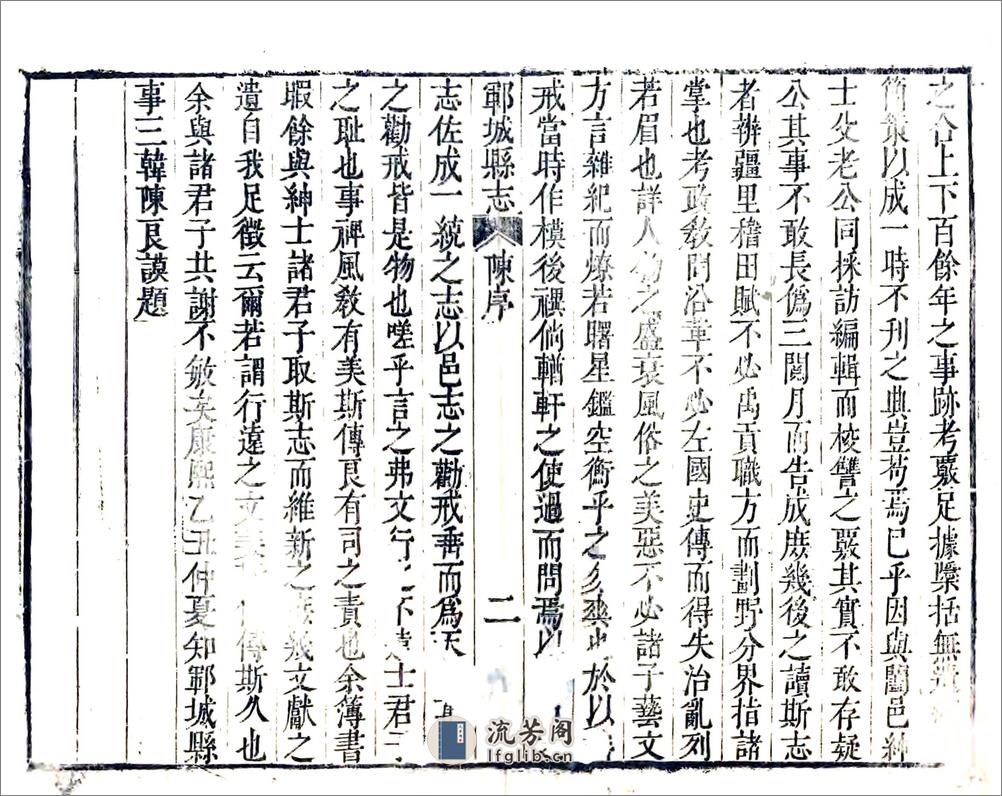 之合上下百餘年之事跡考覈足據檃括無遺
簡策以成一時不刊之典豈苟焉已乎因與闔邑紳
士殳老公同採訪編輯而梭讐之覈其實不敢存疑
公其事不敢長僞三閱月而告成庶幾後之讀斯志
者辨疆里稽田賦不必禹貢職方而劃野分界指諸
掌也考政敎問沿革不必左國史傳而得失治亂列
若眉也詳人物之盛衰風俗之美惡不必諸子藝文
方言雜紀而燎若曙星鑑空衡乎之
於以
戒當時作模後禩倘輶軒之使過而問焉以
鄆城縣志 陳序 二
志佐成一統之志以邑志之勸戒垂而爲天
之勸戒皆是物也嗟乎言之弗文行之不遠士君子
之耻也事裨風敎有美斯傳艮有司之責也余簿書
暇餘與紳士諸君子取斯志而維新之庶幾文獻之
遺自我足徵云爾若謂行遠之文美
傳斯久也
余與諸君子共謝不敏矣康熙乙丑仲夏知鄆城縣
事三韓陳艮謨題
流芳阁
lfglib.cn